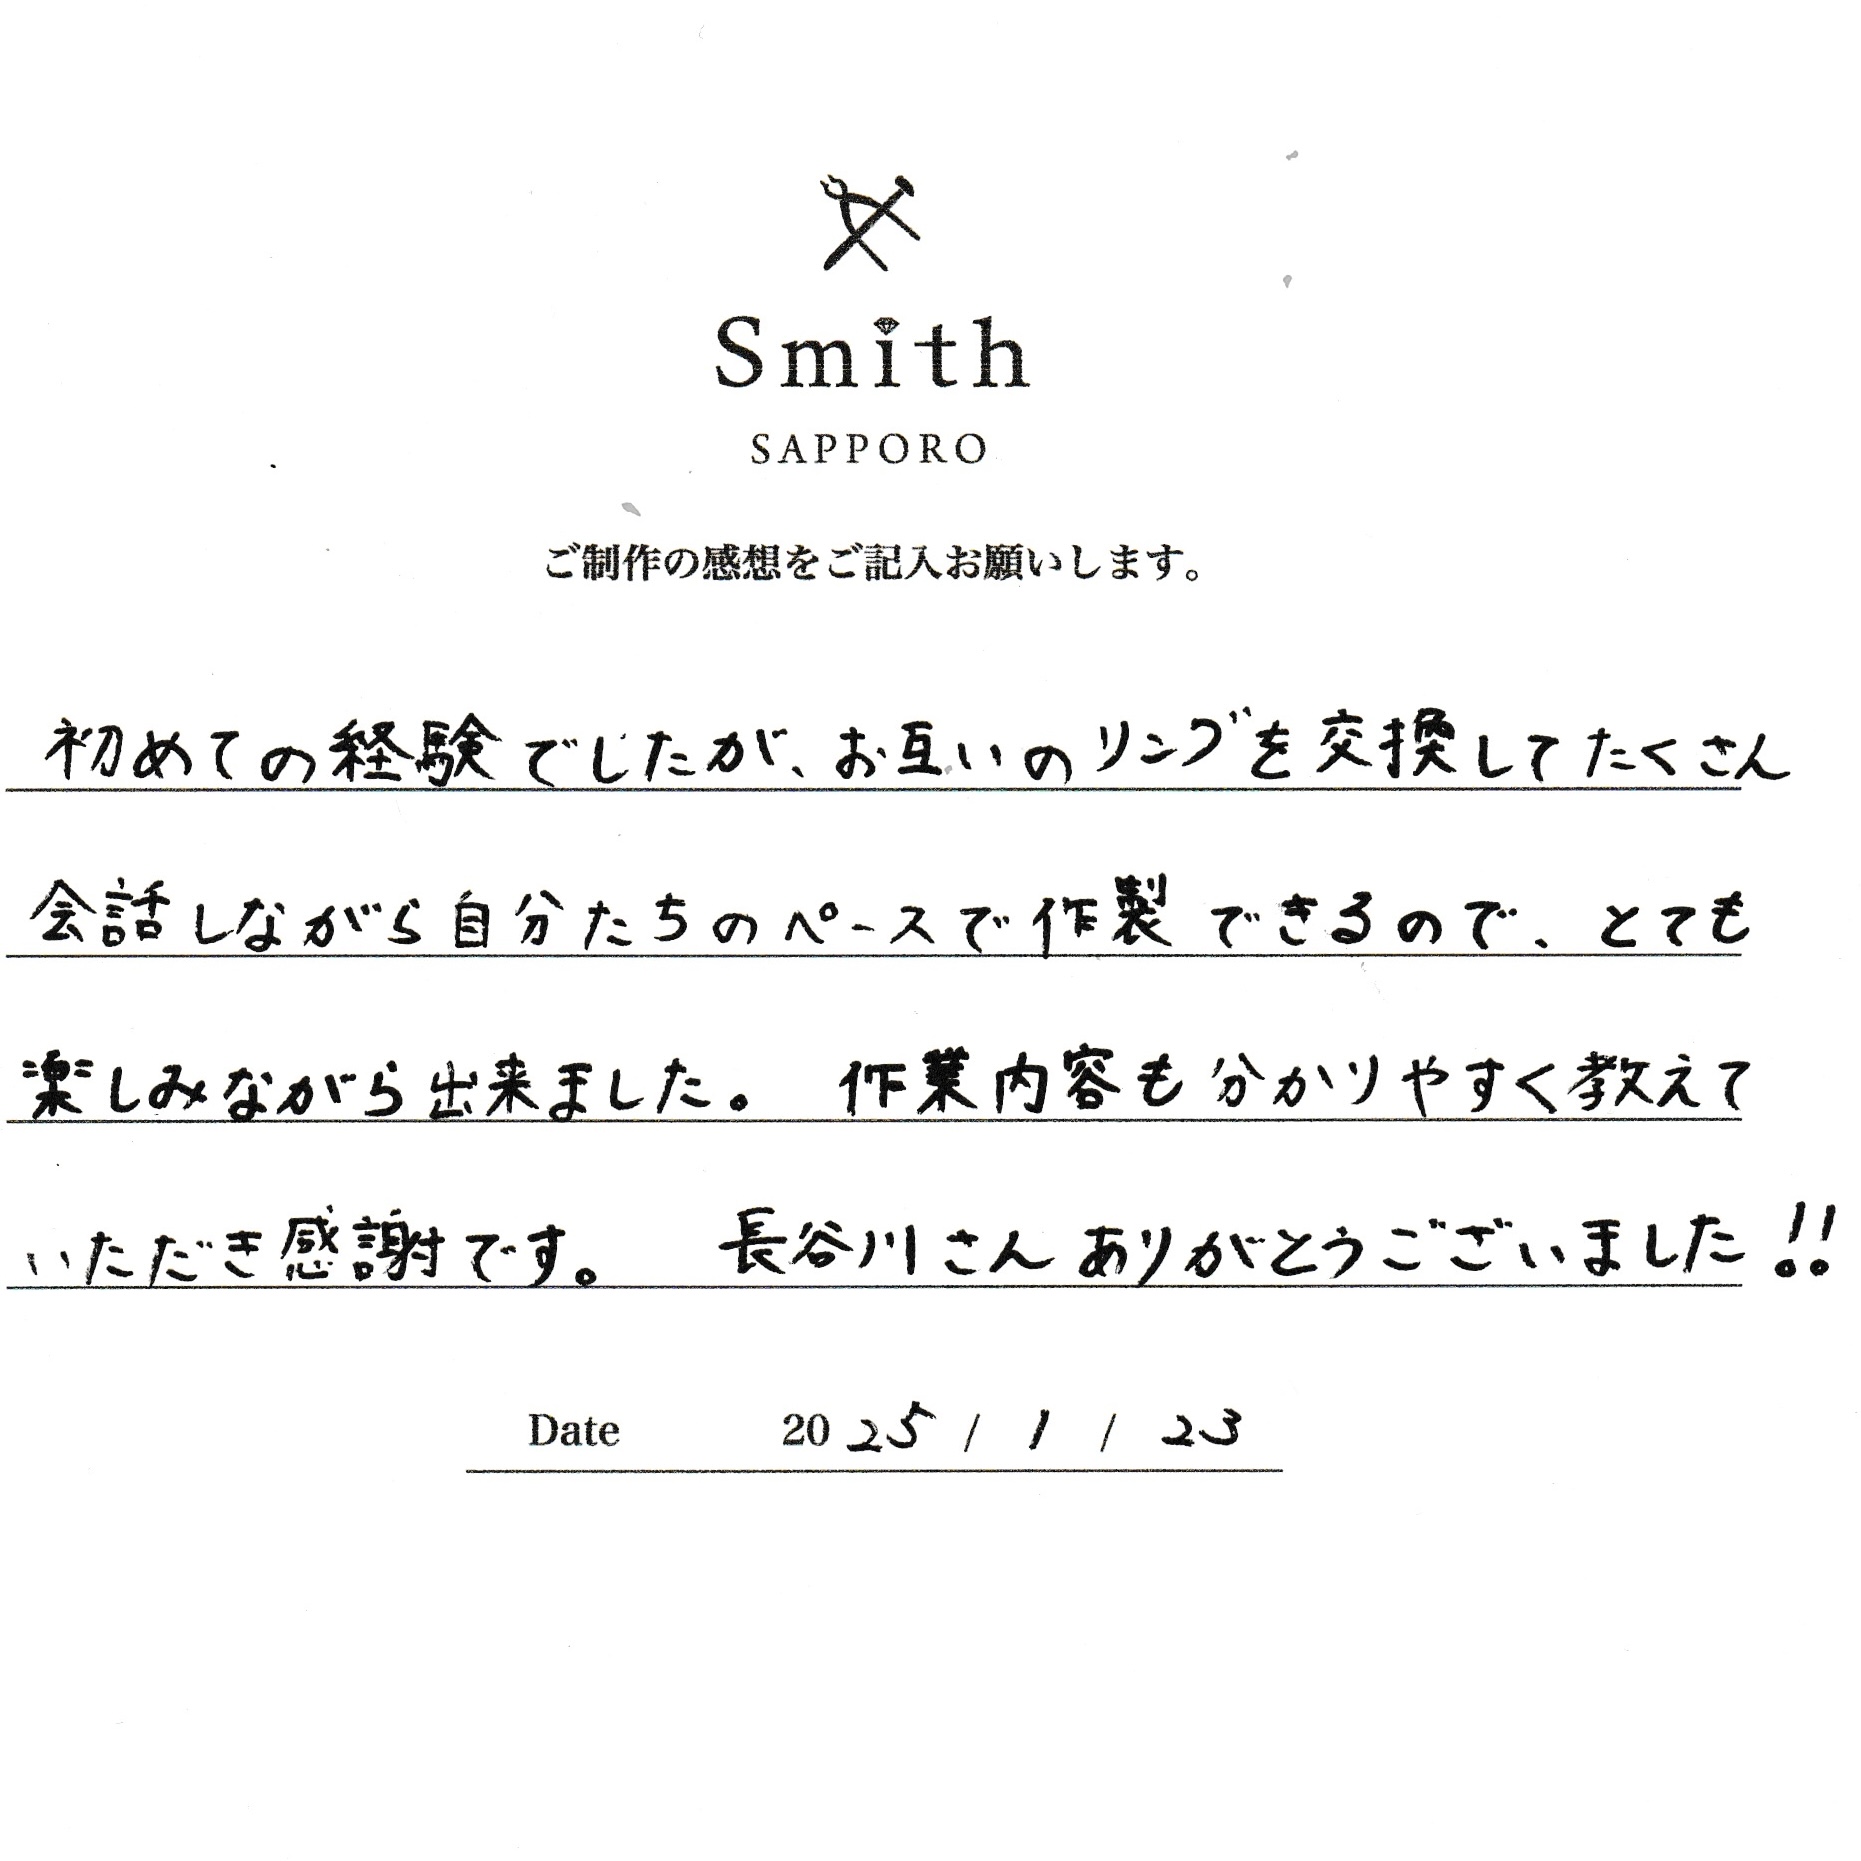 Smith
SAPPORO
ご制作の感想をご記入お願いします。
初めての経験でしたが、お互いのリングを交換してたくさん
会話しながら自分たちのペースで作製できるので、とても
楽しみながら出来ました。 作業内容も分かりやすく教えて
いただき感謝です。 長谷川さんありがとうございました!!
Date 2025 / 1 / 23